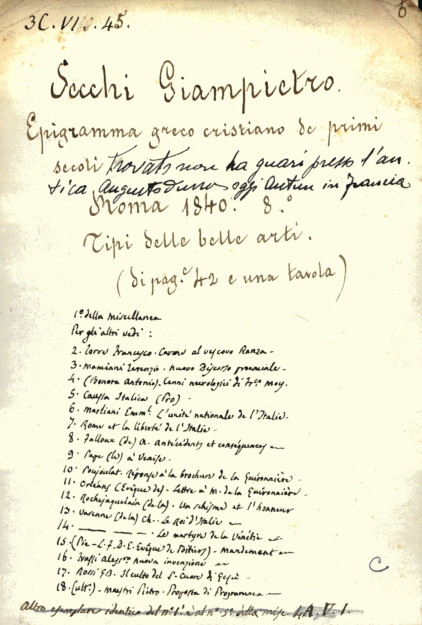 3C. VI . 45.
Secchi Giampietro.
Epigramma greco cristiano de primi
secoli trovato non ha guari presso l'an-
tica Augustoduno oggi Autun in Francia
Roma 1840. 8.°
Tipi delle belle arti.
(di pag.e 42 e una tavola)
1° della miscellanea
Per gli altri vedi:
2. Torre Francesco. Cavour al vescovo Ranza -
3. Mamiani Terenzio. Nuovo Discorso proemiale -
4. (Bonora Antonio). Cenni necrologici di Fr.co Moy.
5. Caussa Italica (Pro)
6. Marliani Emm.l L'unité nationale de l'Italie.
7. Rome et la liberté de l'Italie -
8. Falloux (de) A. Antécédents et conséquences -
9. Page (le) à Venise -
10. Poujoulat. Réponse à la brochure de la Guéronnière -
11. Orléans (Evêque de) - Lettre à M. de la Guéronnière
12. Rochejaquelein (de la) - Un schisme et l'honneur
13. Varenne (de la) Ch. - Le Roi d'Italie -
14. — — — . Le martyre de la Vénétie -
15. (Pie - L. F. D. E. Evêque de Poitiers) - Mandement -
16. Aless.ro nuova invenzione -
17. Rossi G.B. Il culto del S. Cuore di Gesù -
18. (ult.) - Maestri Pietro. Proposta di Programma -
Altro esemplare identico del n° 1. è al n° 5° della misc. A. V. 1
C